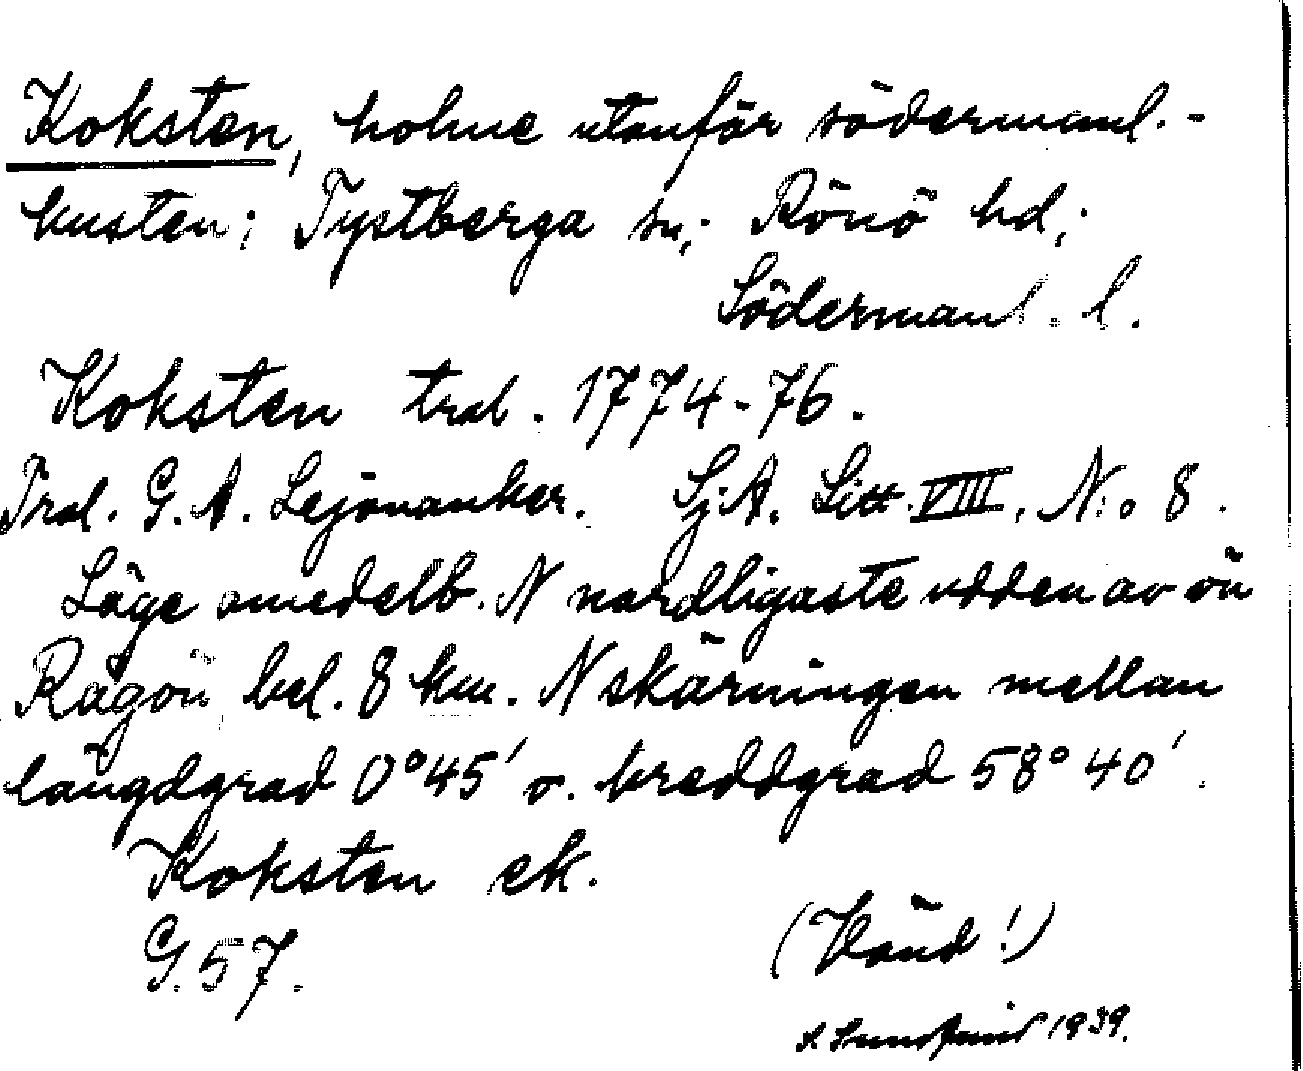 Koksten, holme utanför södermanl.-
kusten; Tystberga sn; Rönö hd;
Södermanl. l.
Koksten trol. 1774-76.
Trol. G. A. Lejonanker. Sj.A. Litt. VIII. N:o 8.
Läge omedelb. N nordligaste udden av ön
Rågön bel. 8 km. N skärningen mellan
längdgrad 0°45' o. breddgrad 58°40'.
Koksten ek.
G. 57.
(Vänd!)
1939.